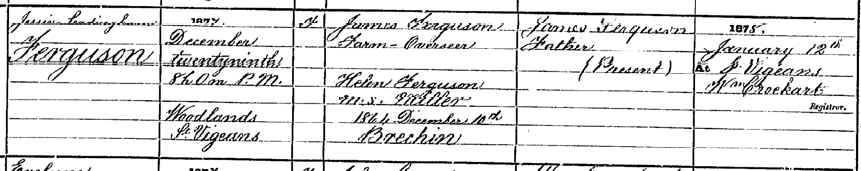 Jessie
Ferguson
1877.
December
Twentyninth
8h. 0m P.M.
Woodlands
St. Vigeans
F
James Ferguson
Farm-Overseer
Helen Ferguson
m.s.
1864 December 10th
Brechin
James Ferguson
Father
(Present)
1878.
January 12th
At St Vigeans
Wm Crockart
Registrar.